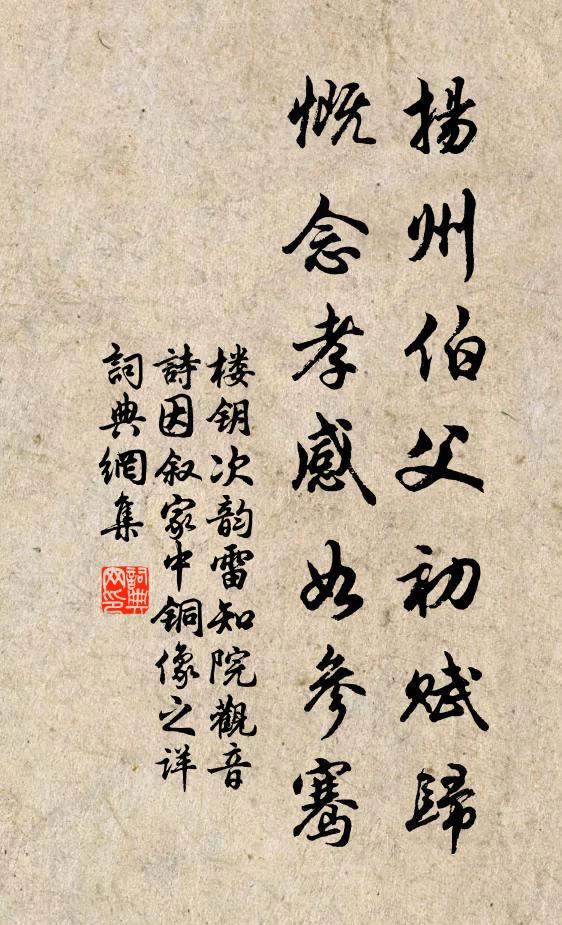 揚州伯父初赋歸
慨念孝感如參骞
楼钥次韵雷知院觀音
詩因叙家中铜像之详
詞典網集
詞典网印